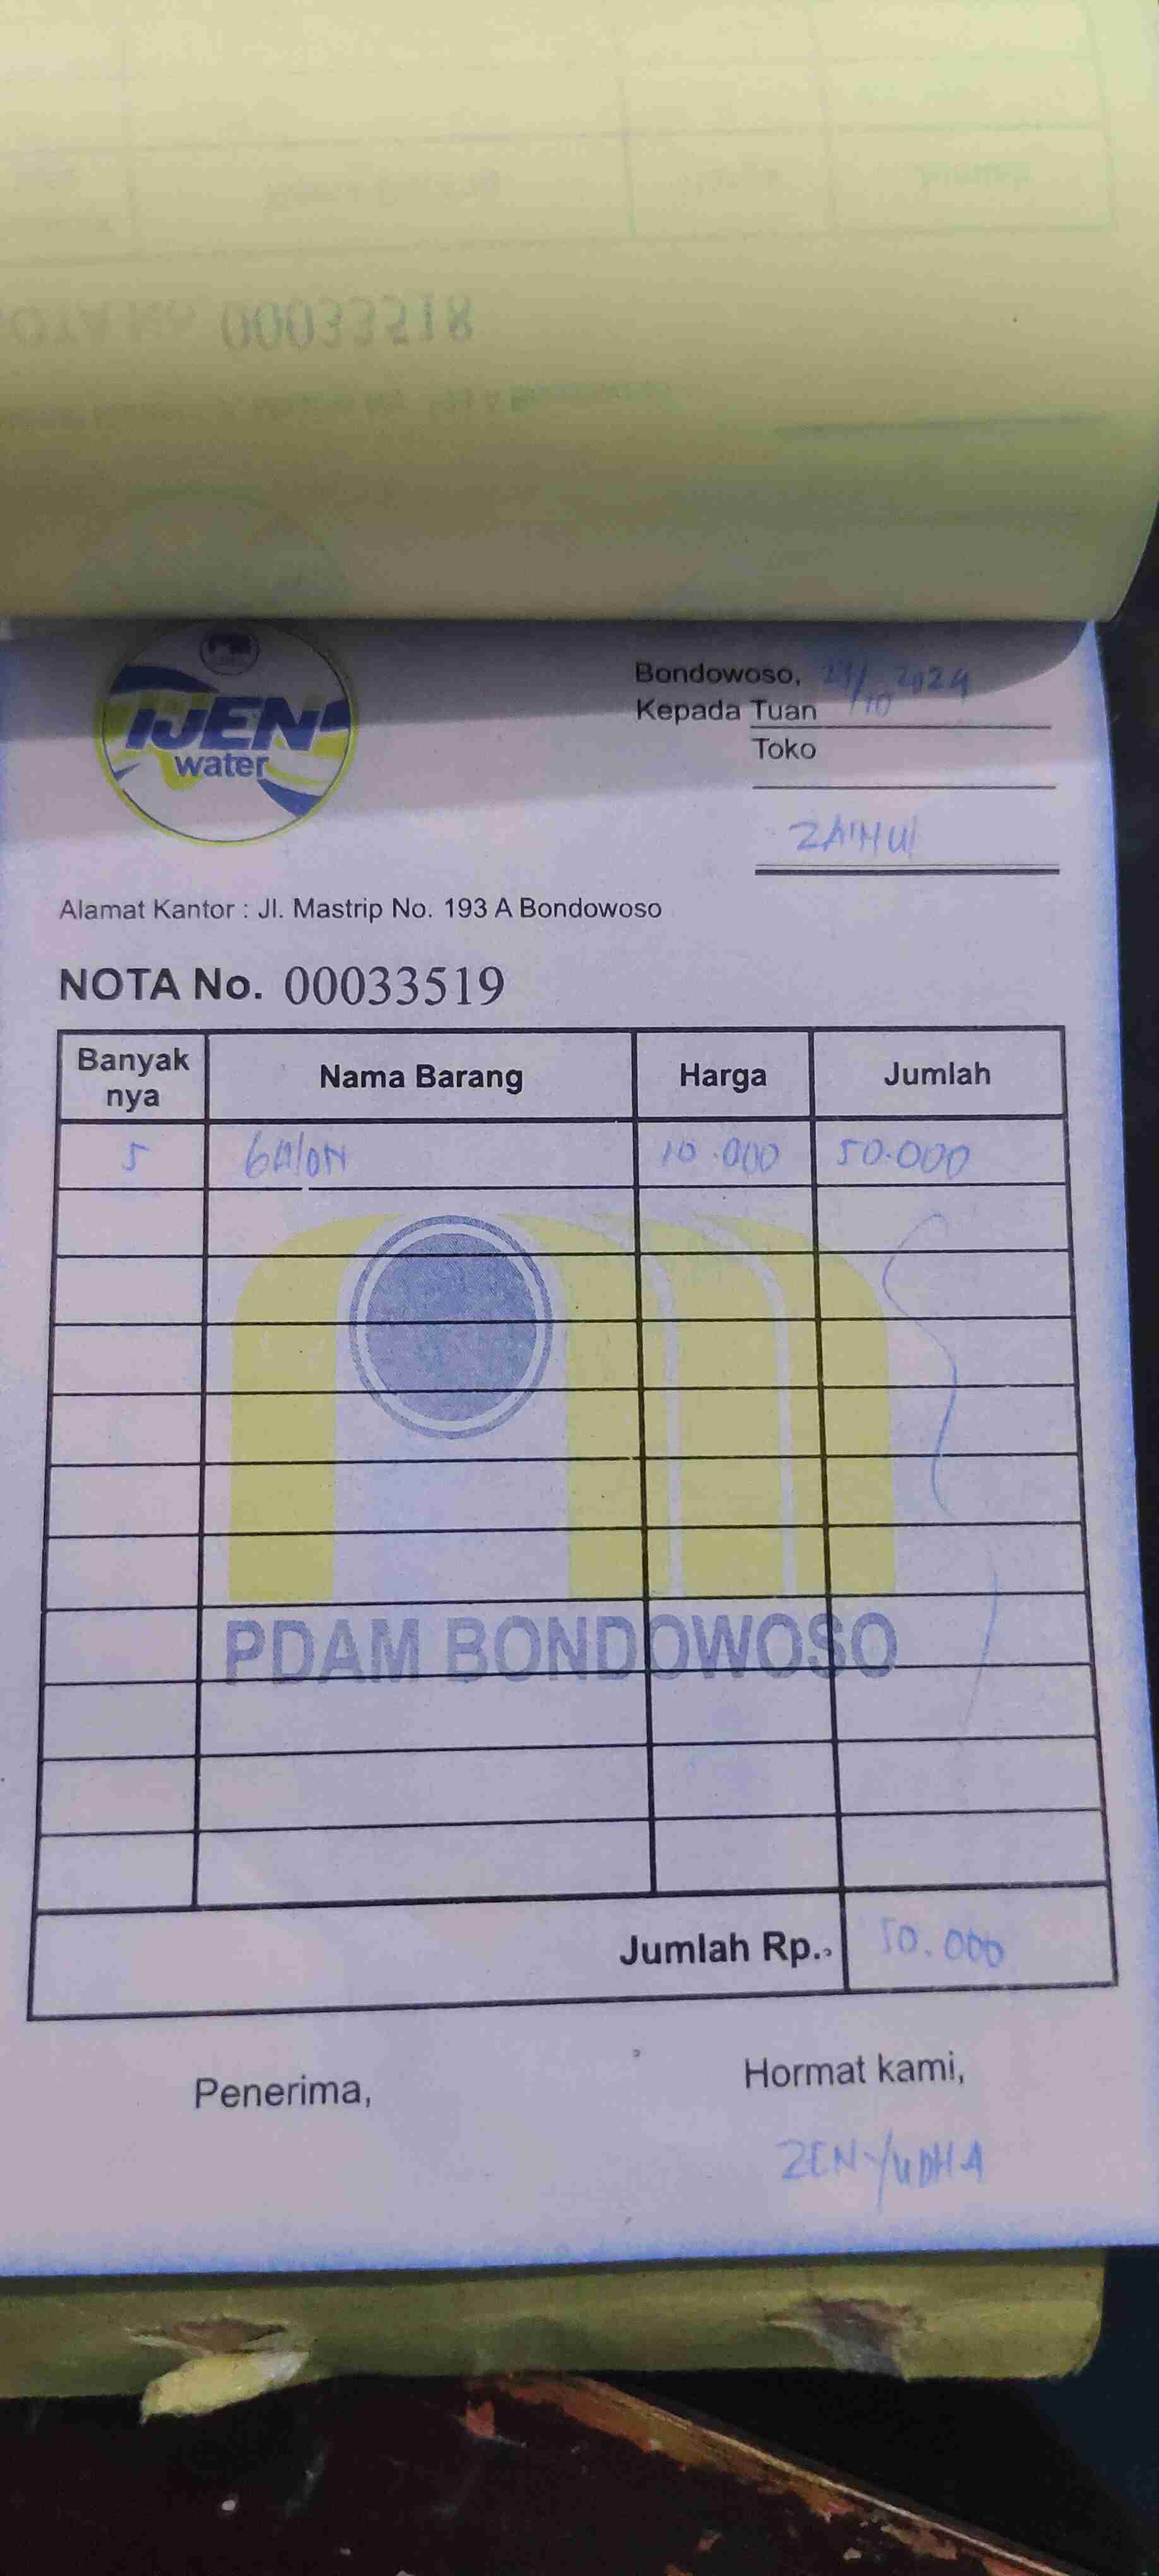 NOTA No. 00033518
IJEN
water
Bondowoso, 2024
Kepada Tuan
Toko
Alamat Kantor : Jl. Mastrip No. 193 A Bondowoso
NOTA No. 00033519
Banyak nya Nama Barang Harga Jumlah
5 GAlON 10.000 50.000
PDAM BONDOWOSO
Jumlah Rp. 50.000
Penerima, Hormat kami,
ZEN YUDHA